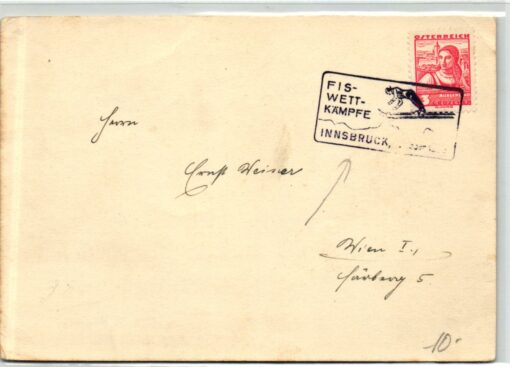 ÖSTERREICH
3
FIS-
WETT-
KÄMPFE
INNSBRUCK,
Herrn
Ernst Weiner
Wien I.,
5
10.-